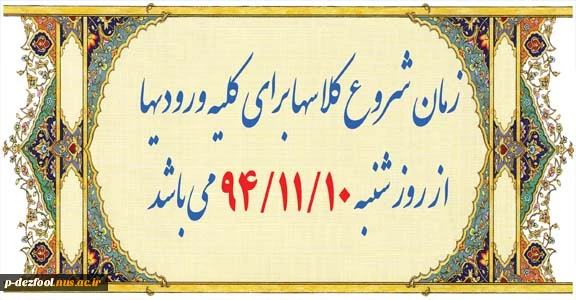 زمان شروع کلاسها برای کلیه ورودیها
از روز شنبه ۹۴/۱۱/۱۰ می باشد
p-dezfool.nus.ac.ir